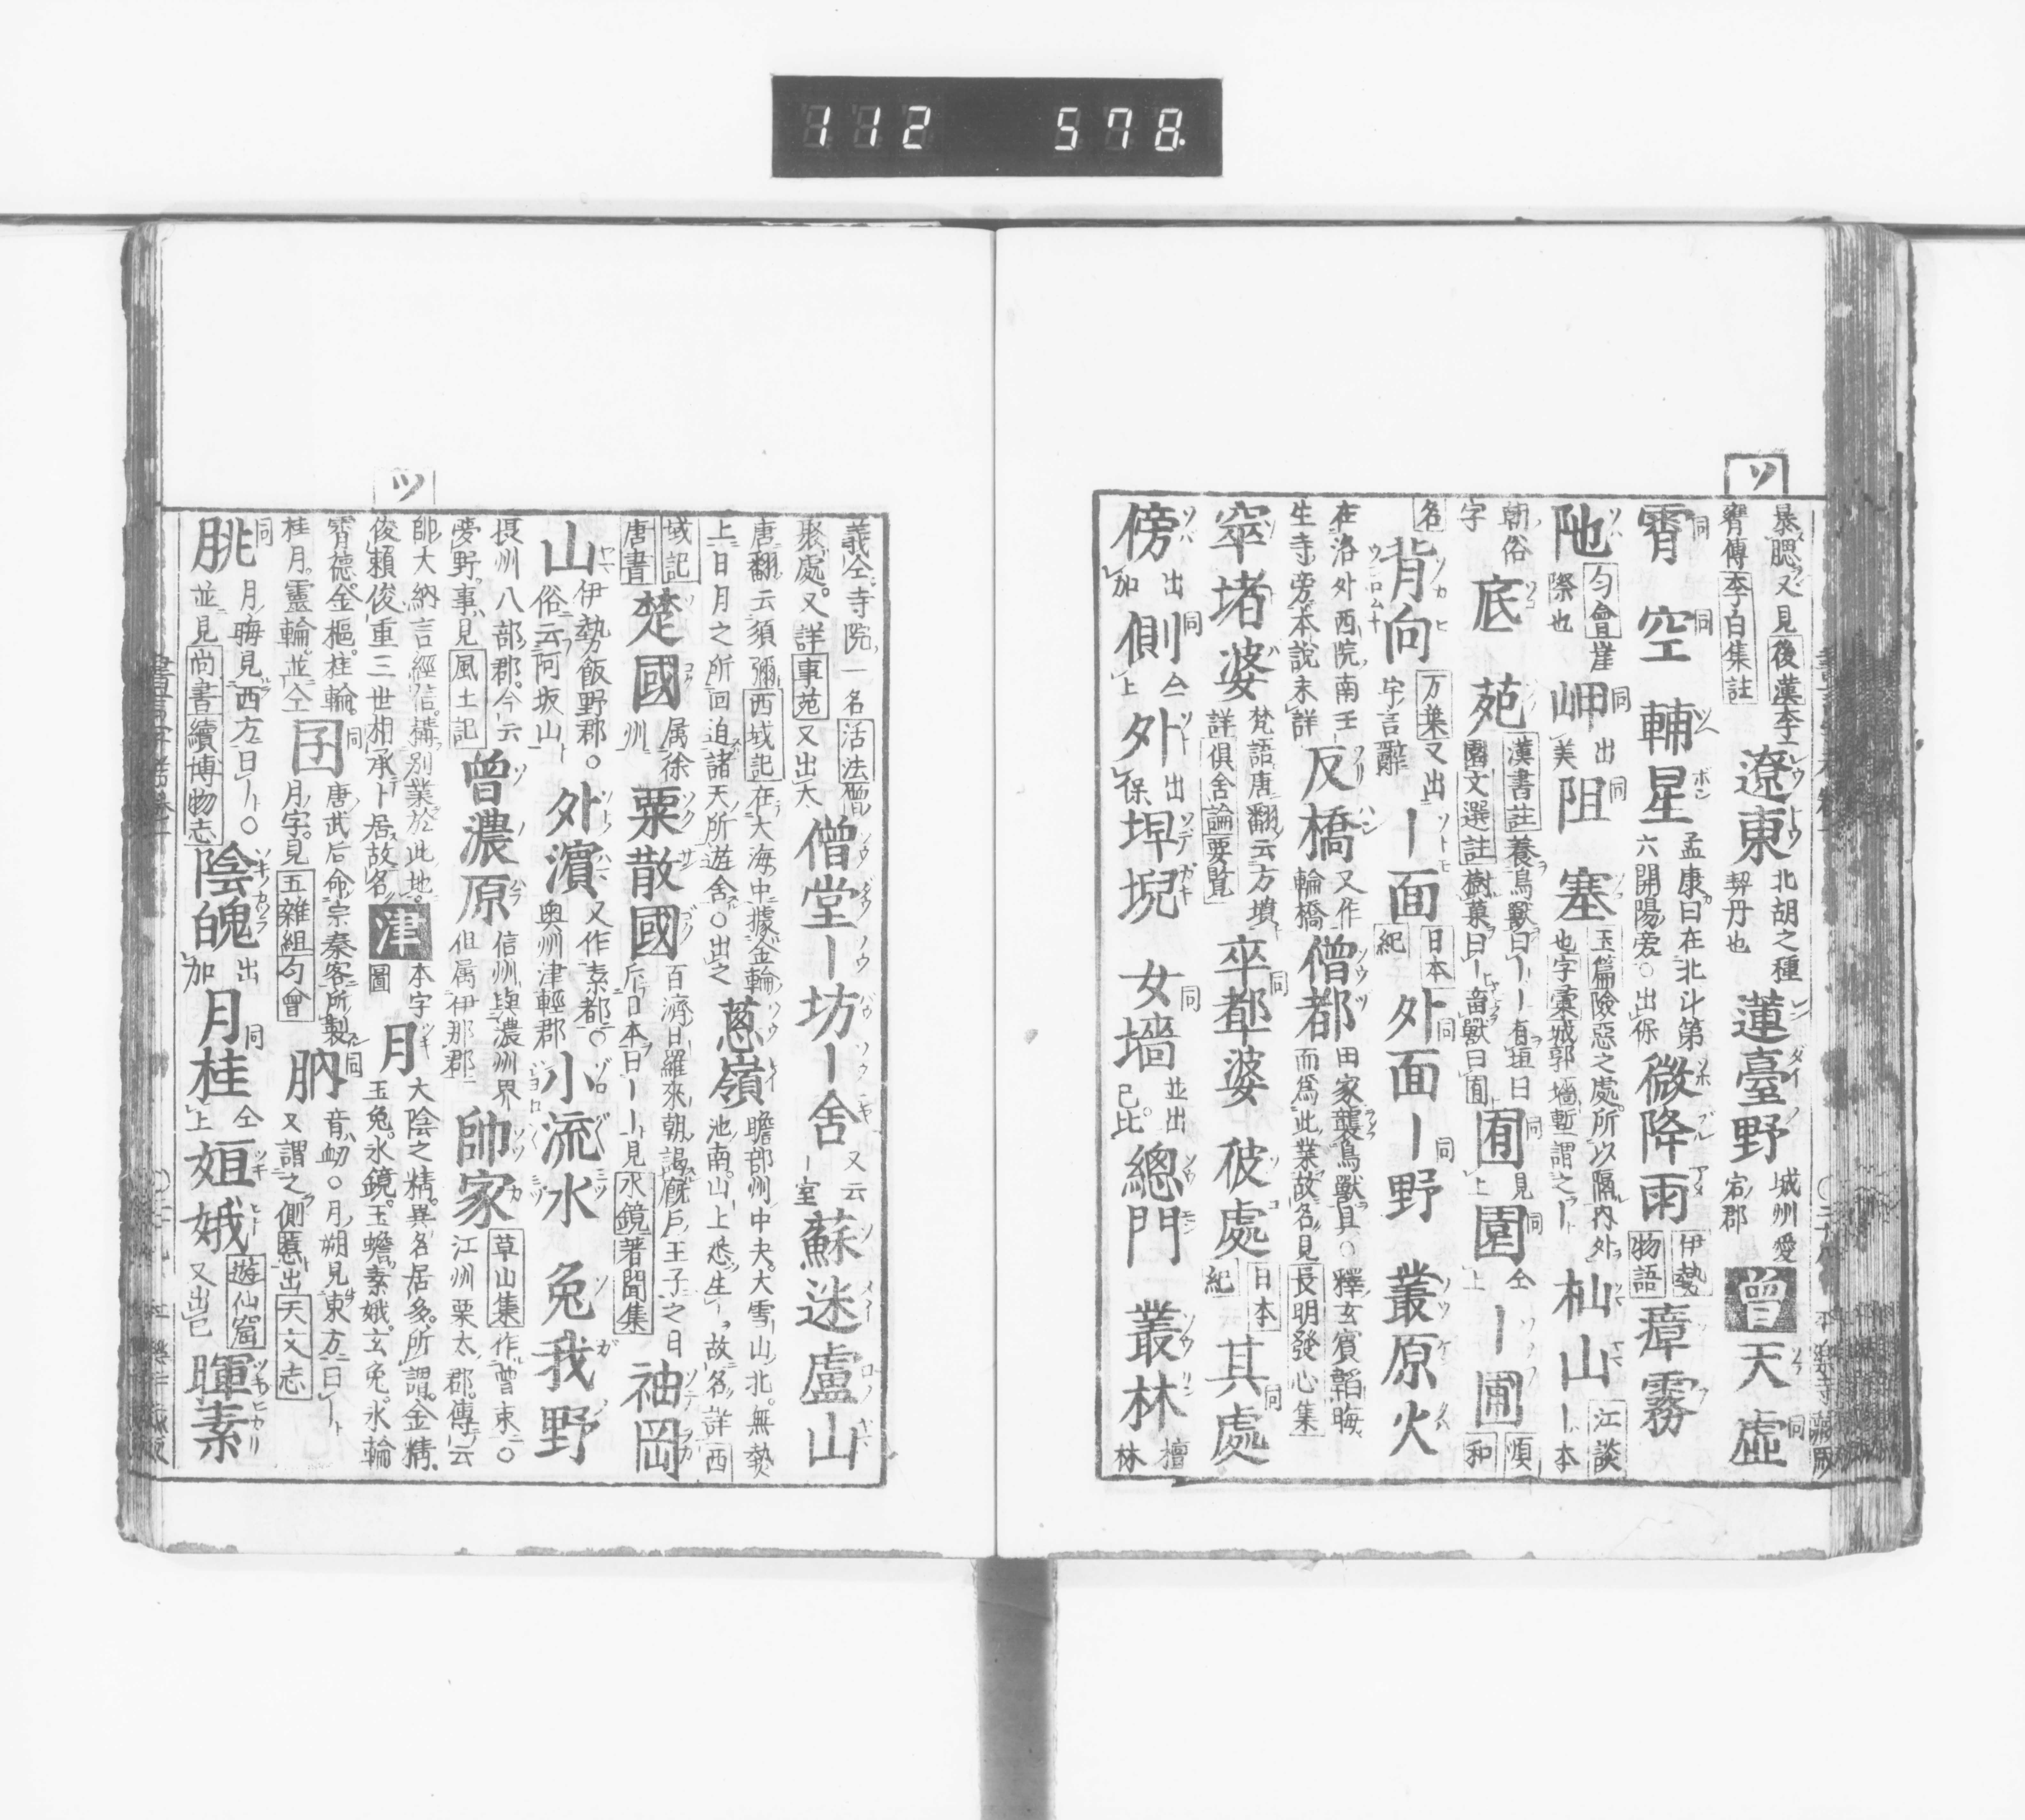 112 578
ソ
暴腮又見後漢李
膺傳李白集註
遼東
北胡之種
契丹也
蓮臺野
城州愛
宕郡
曾
天
虛
霄
空
輔星
孟康曰在北斗第
六開陽旁○出保
微降雨
伊勢
物語
瘴霧
阤
匀會崖
際也
岬
出
美
阻
塞
玉篇險惡之處所以隔内外
也字彙城郭墻塹謂之ー
杣山
江談
ー本
朝俗
字
底
苑
漢書註養鳥獸曰ーー有垣曰
園文選註樹菓曰ー畜獸曰囿
囿
見
上
園
仝
上
ー圃
順
和
名
背向
万葉又出
字言辭
ー面
日本
紀
外面
ー野
叢原火
在洛外西院南王
生寺旁本說未詳
反橋
又作
輪橋
僧都
田家襲鳥獸具○釋玄賓韜晦
而爲此業故名見長明發心集
窣堵婆
梵語唐翻云方墳
詳俱舍論要覽
卒都婆
彼處
日本
紀
其處
傍
出
加
側
仝
上
外
出
保
埤堄
女墻
並出
己比
總門
叢林
檀
林
ツ
義仝寺院一名活法僧
聚處又詳事苑又出太
僧堂
ー坊
ー舍
又云
ー室
蘇迷盧山
唐翻云須彌西域記在大海中據金輪
上日月之所回迫諸天所遊舍○出之
蔥嶺
瞻部州中央大雪山北無熱
池南山上悉生ー故名詳西
域記
唐書
楚國
属徐
州
粟散國
百濟日羅來朝謁厩戶王子之日
斥日本曰ーー見水鏡著聞集
袖岡
山
伊勢飯野郡○
俗云阿坂山
外濱
又作素都○
奥州津輕郡
小流水
兔我野
摂州八部郡今云
夢野事見風土記
曾濃原
信州與濃州界
但属伊那郡
帥家
草山集作曾束○
江州栗太郡傳云
帥大納言經信搆別業於此地
俊賴俊重三世相承卜居故名
津
本字
圖
月
大陰之精異名居多所謂金精
玉兔氷鏡玉蟾素娥玄兔氷輪
霄德金樞桂輪
桂月靈輪並仝
囝
唐武后命宗秦客所製
月字見五雜組匀會
肭
音衂○月朔見東方曰ー
又謂之側慝出天文志
朓
月晦見西方曰ー○
並見尚書續博物志
陰魄
出
加
月桂
仝
上
姮娥
遊仙窟
又出己
暉素